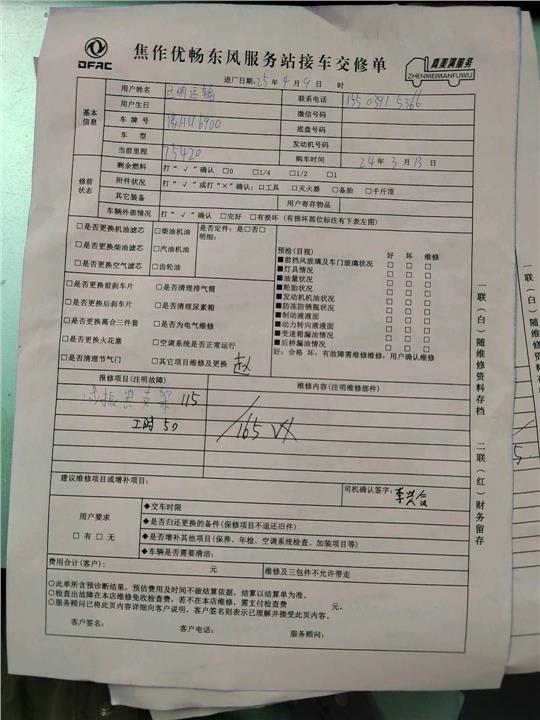 DFAC
焦作优畅东风服务站接车交修单
真美满服务
ZHENMEIMANFUWU
进厂日期:25年4月9日 时
基本信息
用户姓名 运输 联系电话 155 0391 5366
用户生日 微信号码
车牌号 豫HU6900 底盘号码
车型 发动机号码
当前里程 75420 购车时间 24年3月13日
修前状态
剩余燃料 打“√”确认 □0 □1/4 □1/2 □1
附件状况 打“√”或打“×”确认:□工具 □灭火器 □备胎 □千斤顶
其它装备 用户寄存物品
车辆外部情况 打“√”确认 □完好 □有损坏（有损坏部位标注有下表左图）
□是否更换机油滤芯 □柴油机油 是否定件:是□否□
明细:
□是否更换柴油滤芯 □汽油机油
□是否更换空气滤芯 □齿轮油
□是否更换前刹车片 □是否清理排气筒
□是否更换后刹车片 □是否清理尿素箱
□是否更换离合三件套 □是否为电气维修
□是否更换火花塞 □空调系统是否正常运行
□是否清理节气门 □其它项目维修及更换 赵
预检(目视) 好 坏 维修
■前挡风玻璃及车门玻璃状况 □ □ □
■灯具情况 □ □ □
■油量状况 □ □ □
■轮胎状况 □ □ □
■发动机机油情况 □ □ □
■防冻防锈瓶状况 □ □ □
■制动液液面 □ □ □
■动力转向液液面 □ □ □
■变速箱漏油情况 □ □ □
■后桥漏油情况 □ □ □
好:合格 坏:有故障需维修维修:用户确认维修
报修项目(注明故障) 维修内容(注明维修部件)
支架 115
工时 50
165
建议维修项目或增补项目:
司机确认签字: 李兴合
用户要求
□有 □无
◆交车时限
◆是否归还更换的备件(保修项目不退还旧件)
◆是否增补其他项目(保养、年检、空调系统检查、加装项目等)
◆车辆是否需要清洁:
费用合计(客户): 元 维修及三包件不允许带走
○此单所含预诊断结果，预估费用及时间不做结算依据，结算以结算单为准。
○检查出故障在本店维修免收检查费，若不在本店维修，需支付检查费 元。
○服务顾问已将此页内容详细向客户说明，客户签名则表示已理解并接受此页内容。
客户签名: 客户电话: 服务顾问:
一联(白)随维修资料存档
二联(红)财务留存